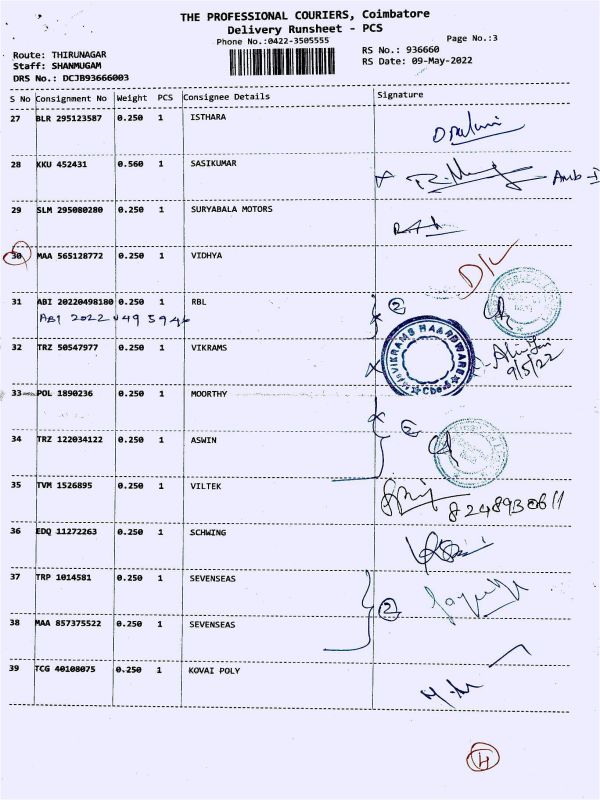 THE PROFESSIONAL COURIERS, Coimbatore
Delivery Runsheet - PCS
Phone No.:0422-3505555
Page No.:3
Route: THIRUNAGAR
RS No.: 936660
Staff: SHANMUGAM
RS Date: 09-May-2022
DRS No.: DCJB93666003
S No Consignment No Weight PCS Consignee Details Signature
27 BLR 295123587 0.250 1 ISTHARA
28 KKU 452431 0.560 1 SASIKUMAR
29 SLM 295080280 0.250 1 SURYABALA MOTORS
30 MAA 565128772 0.250 1 VIDHYA
D/L
31 ABI 20220498180 0.250 1 RBL
2
32 TRZ 50547977 0.250 1 VIKRAMS
VIKRAMS HAARDWARE
9/5/22
33 POL 1890236 0.250 1 MOORTHY
2
34 TRZ 122034122 0.250 1 ASWIN
35 TVM 1526895 0.250 1 VILTEK
36 EDQ 11272263 0.250 1 SCHWING
37 TRP 1014581 0.250 1 SEVENSEAS
2
38 MAA 857375522 0.250 1 SEVENSEAS
39 TCG 40108075 0.250 1 KOVAI POLY